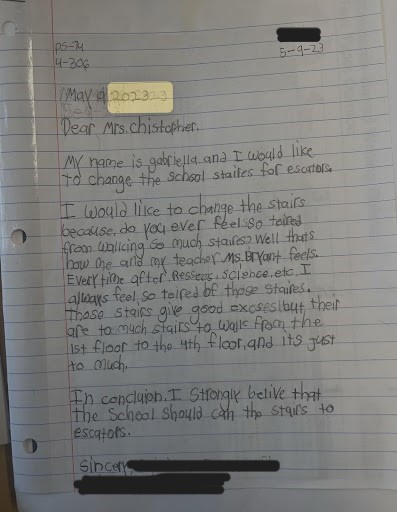 PS-74
4-306
5-9-23
May 9 2023
Dear Mrs. Chistopher,
My name is gabriella. and I would like
to change the school staires for escators.
I would like to change the stairs
because, do you ever feel so teired
from walking so much staires? Well thats
how me and my teacher Ms. Bryant feels.
Every time after Ressecs, science, etc. I
always feel, so teired of those staires.
those stairs give good excsesl but, their
are to much stairs to walk from the
1st floor to the 4th floor, and its just
to much.
In conclaion, I Strongly belive that
the School should the stairs to
escators.
Sincery,